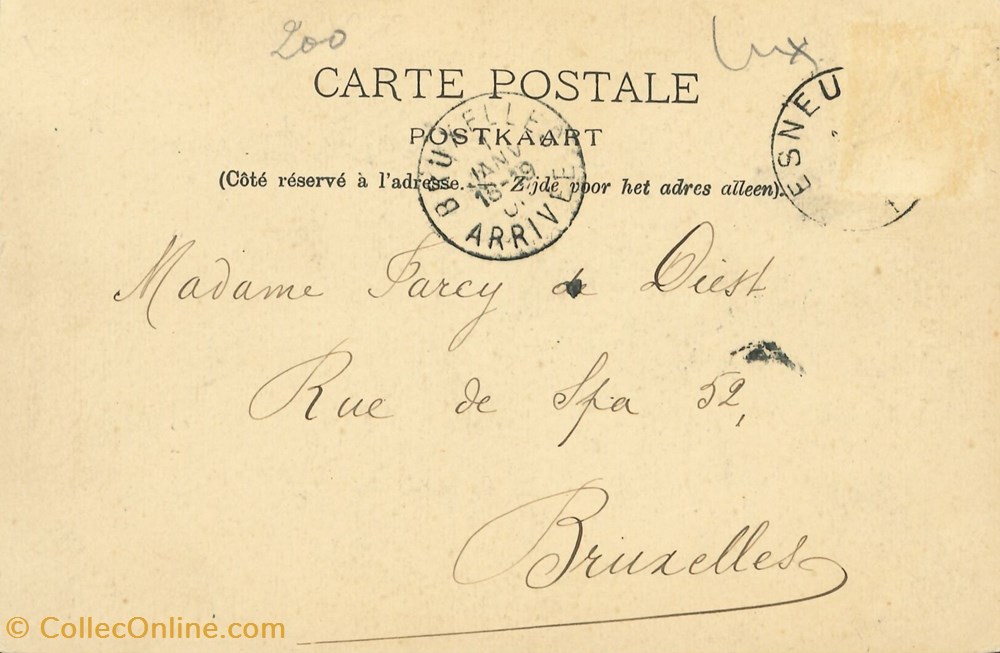 200
CARTE POSTALE
POSTKAART
(Côté réservé à l'adresse. — Zijde voor het adres alleen).
BRUXELLES
JANV
18-19
ARRIVEE
ESNEU
Madame Farcy de Diest
Rue de Spa 52,
Bruxelles
© CollecOnline.com